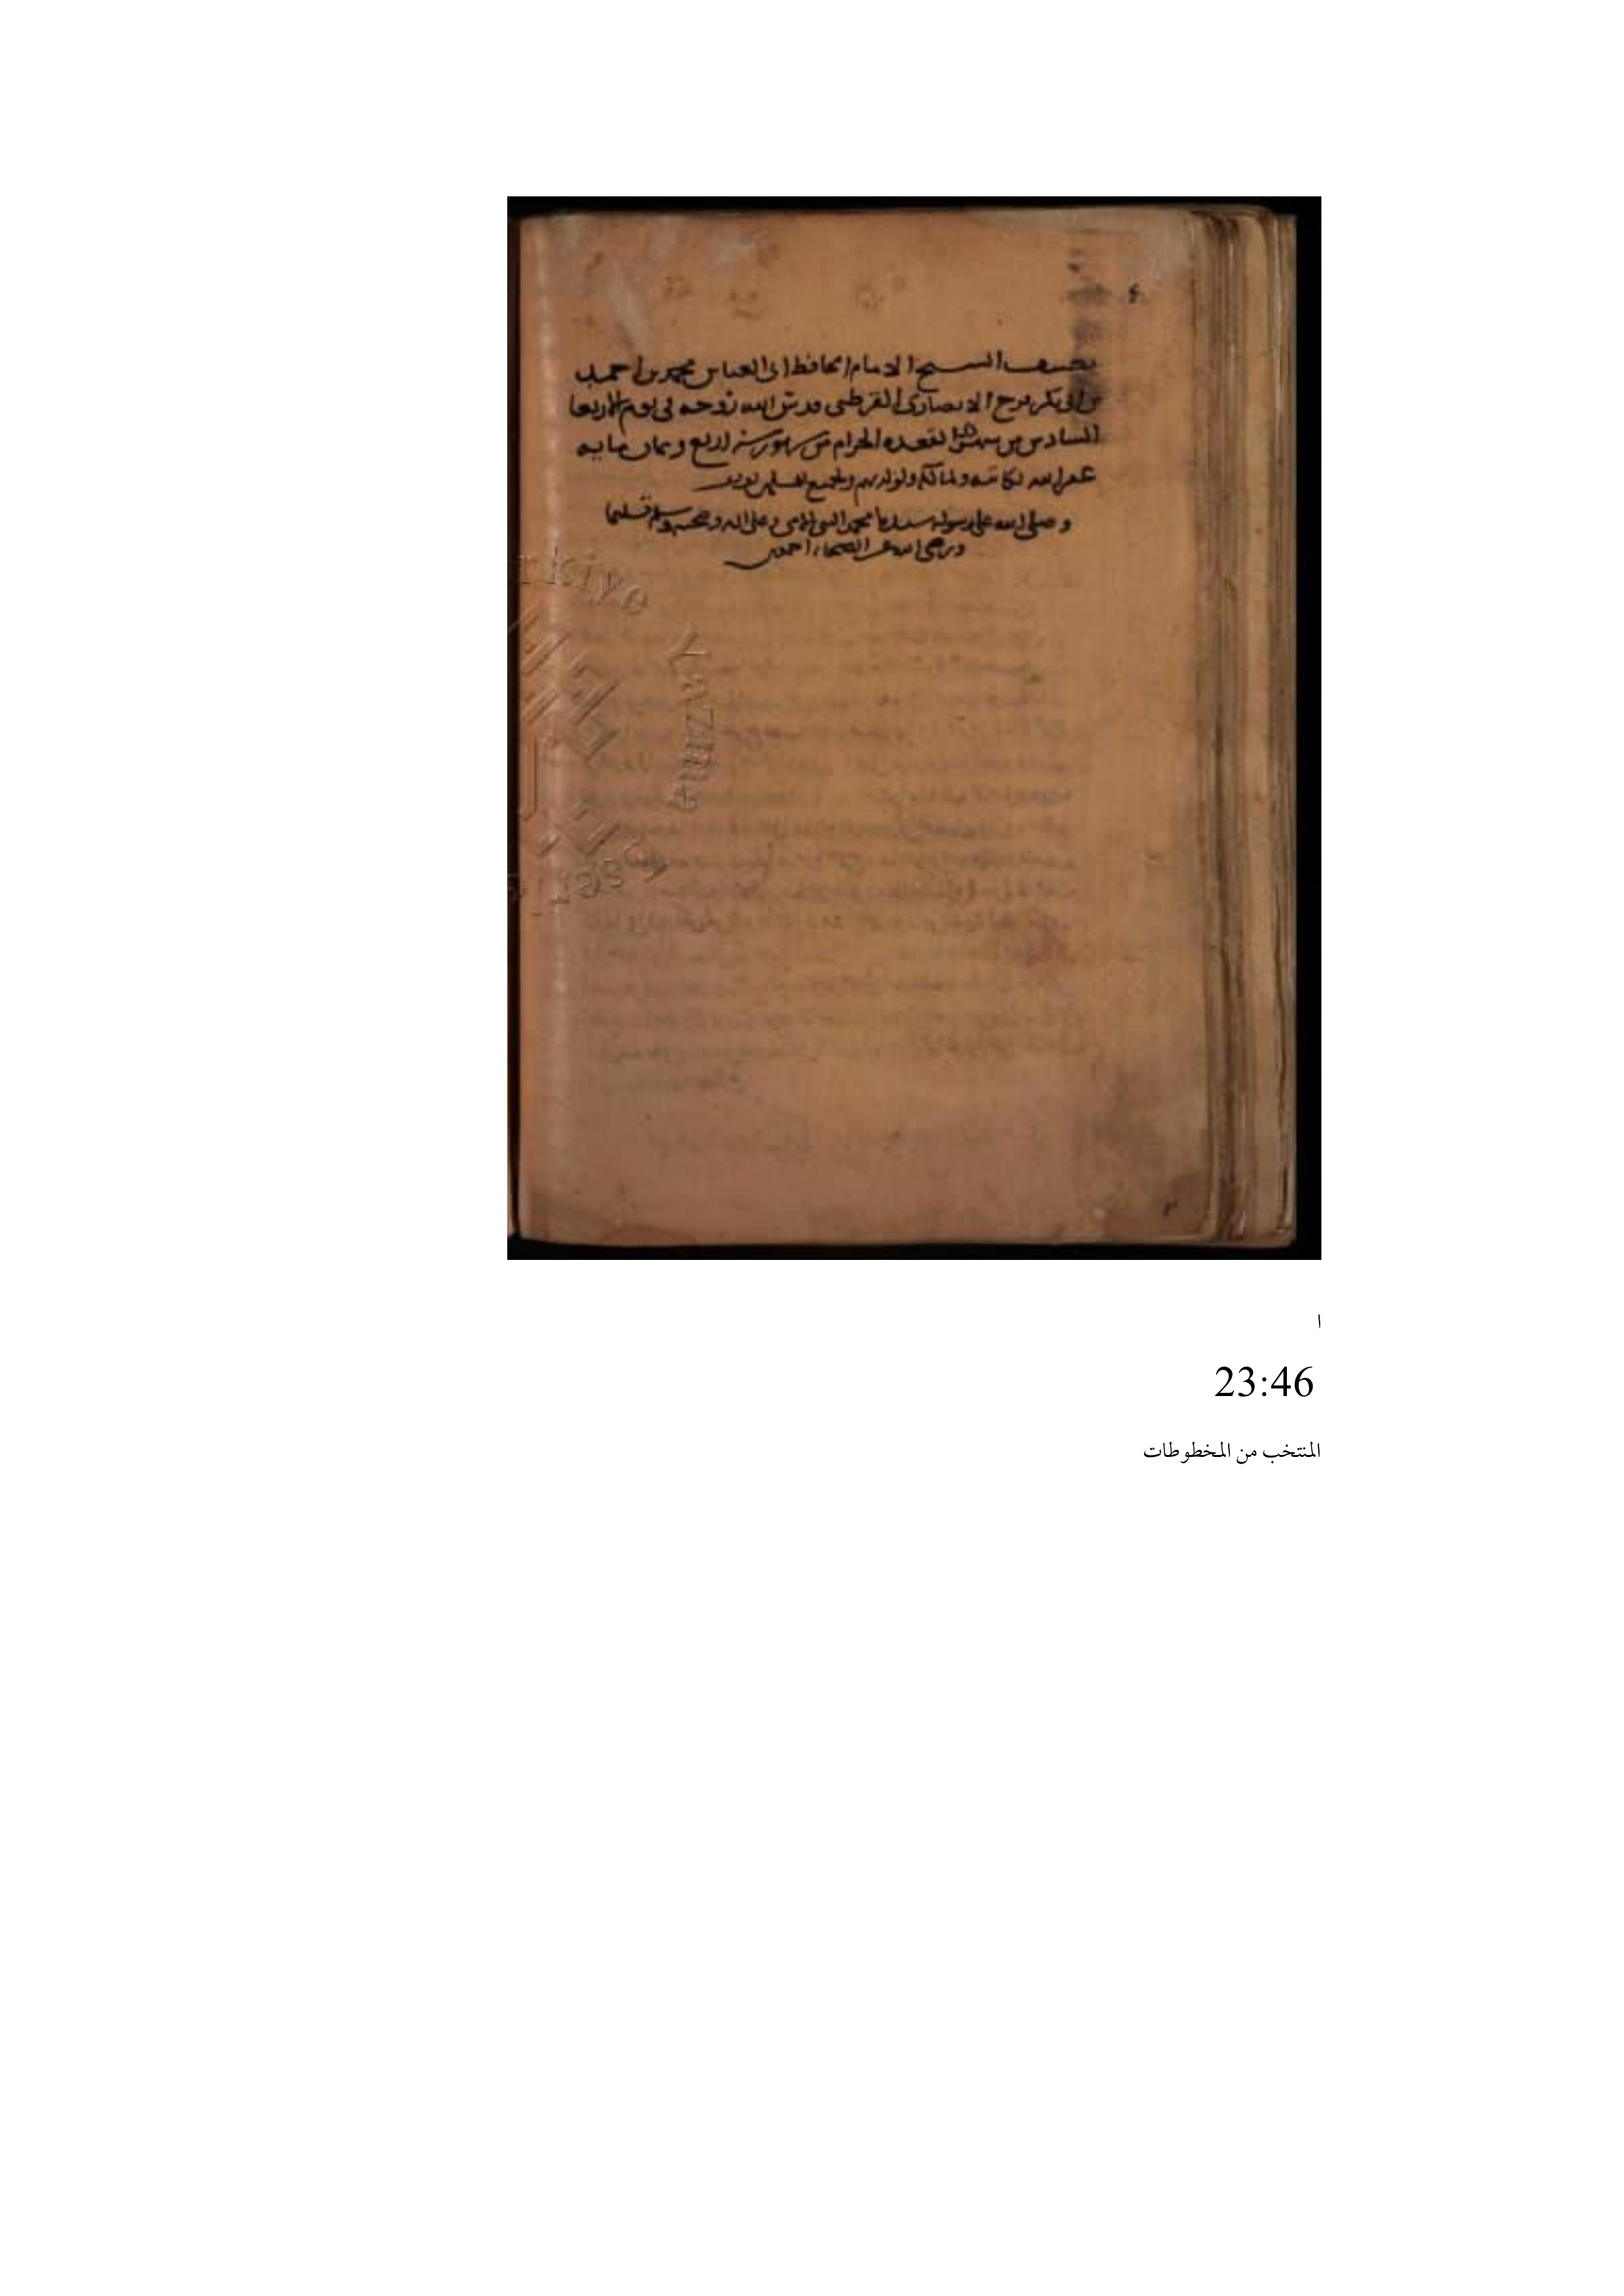 تصنيف الشيخ الامام الحافظ ابى العباس محمد بن احمد
بن ابى بكر فرح الانصارى القرطبى قدس الله روحه فى يوم الاربعا
السادس من شهر ذى القعده الحرام من شهور سنة اربع وثمان مايه
غفر الله لكاتبه ولمالكه ولوالديهم ولجميع المسلمين
وصلى الله على رسوله سيدنا محمد النبى الامى وعلى اله وصحبه وسلم تسليما
ورضى الله عن الصحابه اجمعين
Türkiye
Yazma
ا
23:46
المنتخب من المخطوطات